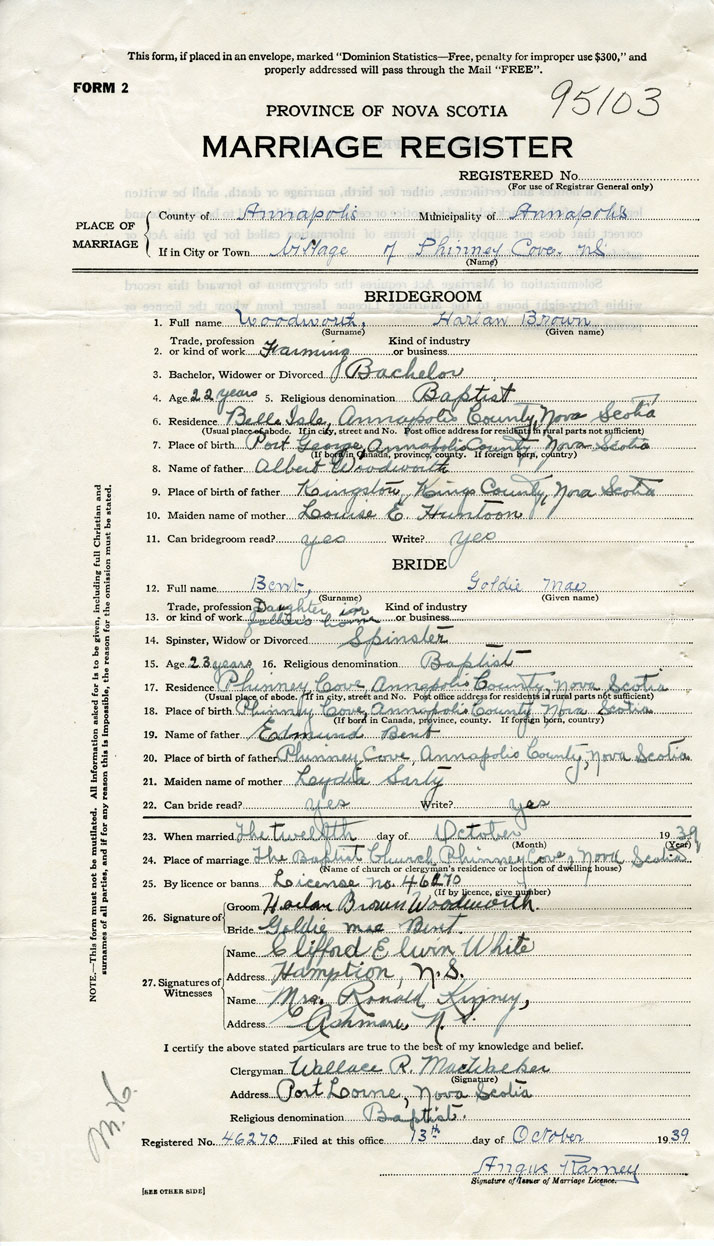 This form, if placed in an envelope, marked "Dominion Statistics—Free, penalty for improper use $300," and
properly addressed will pass through the Mail "FREE".
FORM 2
95103
PROVINCE OF NOVA SCOTIA
MARRIAGE REGISTER
REGISTERED No.
(For use of Registrar General only)
PLACE OF MARRIAGE
County of Annapolis Municipality of Annapolis
If in City or Town Village of Phinney Cove. NS
(Name)
BRIDEGROOM
1. Full name Woodworth, Harlan Brown
(Surname) (Given name)
Trade, profession Kind of industry
2. or kind of work Farming or business
3. Bachelor, Widower or Divorced Bachelor
4. Age 22 years 5. Religious denomination Baptist
6. Residence Belle Isle, Annapolis County, Nova Scotia
(Usual place of abode. If in city, street and No. Post office address for residents in rural parts not sufficient)
7. Place of birth Port George, Annapolis County, Nova Scotia
(If born in Canada, province, county. If foreign born, country)
8. Name of father Albert Woodworth
9. Place of birth of father Kingston, Kings County, Nova Scotia
10. Maiden name of mother Louise E. Huntoon
11. Can bridegroom read? yes Write? yes
BRIDE
12. Full name Bent, Goldie Mae
(Surname) (Given name)
Trade, profession Daughter in Kind of industry
13. or kind of work father's home or business
14. Spinster, Widow or Divorced Spinster
15. Age 23 years 16. Religious denomination Baptist
17. Residence Phinney Cove, Annapolis County, Nova Scotia
(Usual place of abode. If in city, street and No. Post office address for residents in rural parts not sufficient)
18. Place of birth Phinney Cove, Annapolis County Nova Scotia
(If born in Canada, province, county. If foreign born, country)
19. Name of father Edmund Bent
20. Place of birth of father Phinney Cove, Annapolis County, Nova Scotia
21. Maiden name of mother Lydia Sarty
22. Can bride read? yes Write? yes
23. When married The twelfth day of October 1939
(Month) (Year)
24. Place of marriage The Baptist Church Phinney Cove, Nova Scotia
(Name of church or clergyman's residence or location of dwelling house)
25. By licence or banns License no. 46270
(If by licence, give number)
26. Signature of
Groom Harlan Brown Woodworth.
Bride Goldie mae Bent
27. Signatures of Witnesses
Name Clifford Elwin White
Address Hamption, N.S.
Name Mrs. Ronald Kinney,
Address Ashmore, N.S.
I certify the above stated particulars are true to the best of my knowledge and belief.
Clergyman Wallace R. MacWalker
(Signature)
Address Port Lorne, Nova Scotia
Religious denomination Baptist.
Registered No. 46270 Filed at this office 13th day of October 1939
Angus Ramey
Signature of Issuer of Marriage Licence.
[SEE OTHER SIDE]
NOTE.—This form must not be mutilated. All information asked for is to be given, including full Christian and
surnames of all parties, and if for any reason this is impossible, the reason for the omission must be stated.